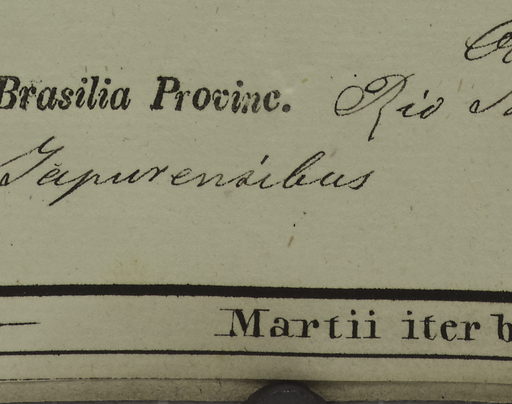 Brasilia Provinc. Rio
Japurensibus
Martii iter b